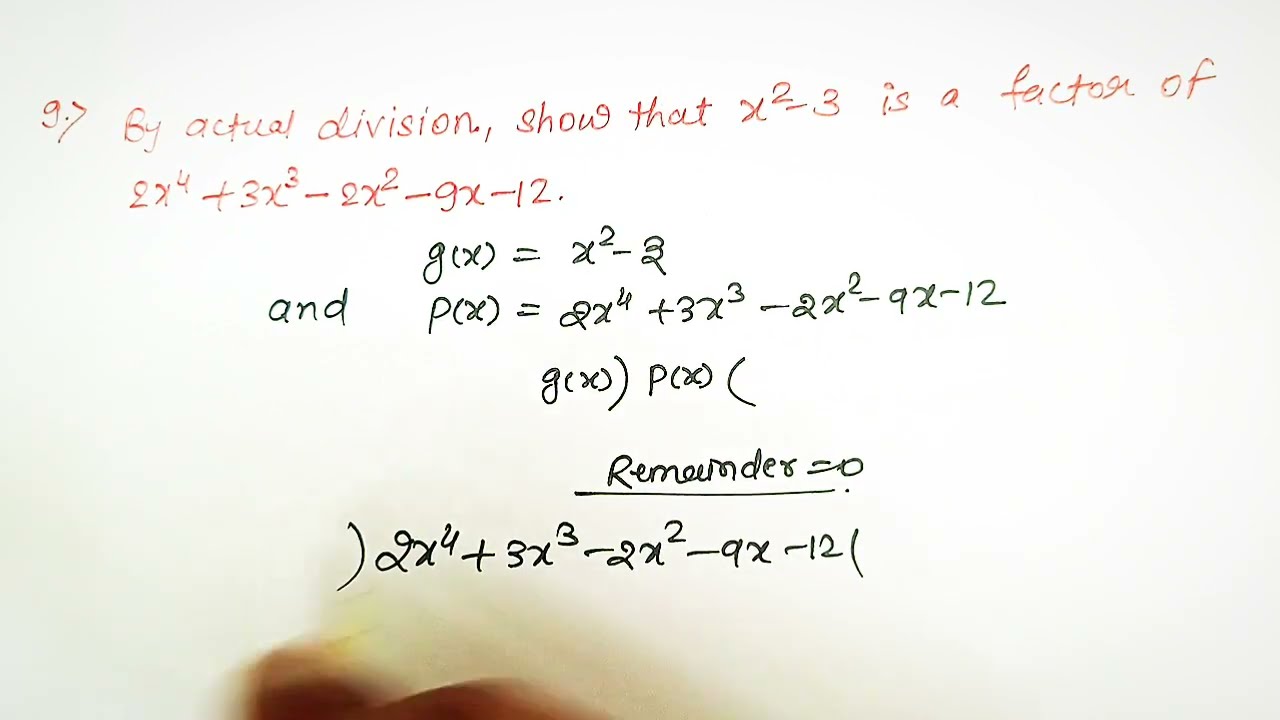 9.> By actual division, show that x²-3 is a factor of
2x⁴+3x³-2x²-9x-12.
g(x) = x²-3
and P(x) = 2x⁴+3x³-2x²-9x-12
g(x)) P(x) (
Remainder=0
)2x⁴+3x³-2x²-9x-12(